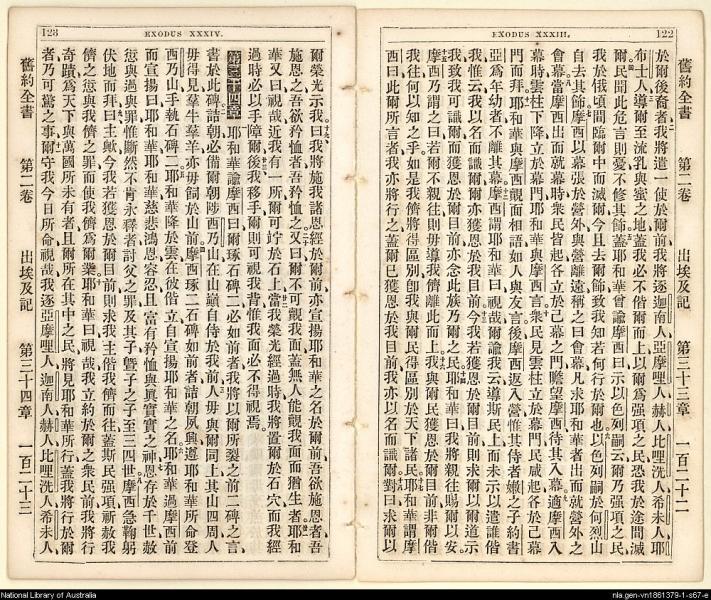 EXODUS XXXIII. 122
舊約全書 第二卷 出埃及記 第三十三章 一百二十二
於爾後裔者我將遣一使於爾前我將逐迦南人亞摩哩人赫人比哩洗人希未人耶
布士人導爾至流乳與蜜之地蓋我必不偕爾而上以爾為强項之民恐我於途間滅
爾民聞此危言則憂不修其飾蓋耶和華曾諭摩西曰示以色列嗣云爾乃强項之民
我於俄頃間臨爾中而滅爾今且去爾飾致我知若何行於爾也以色列嗣於何烈山
自去其飾摩西以幕張於營外與營離遠稱之曰會幕凡求耶和華者出而就營外之
會幕當摩西出而就幕時衆民皆起各立於己幕之門瞻望摩西待其入幕適摩西入
幕時雲柱下降立於幕門耶和華與摩西言衆民見雲柱立於幕門民咸起各於己幕
門而拜耶和華與摩西覿面相語如人與友言後摩西返入營惟其侍者嫩之子約書
亞為年幼者不離其幕摩西謂耶和華曰視哉爾諭我云導斯民上而未示以遣誰偕
我惟云我以名而識爾爾亦獲恩於我目前今我若獲恩於爾目前則求爾以爾道示
我致我可識爾而獲恩於爾目前亦念此族乃爾之民耶和華曰我將親往賜爾以安
摩西乃謂之曰若爾不親往則毋導我儕離此而上我與爾民獲恩於爾目前非爾偕
我往何以知之乎如是我儕將得區別卽我與爾民得區別於天下諸民耶和華謂摩
西曰此爾所言者我亦將行之蓋爾已獲恩於我目前我亦以名而識爾對曰求爾以
123 EXODUS XXXIV.
爾榮光示我曰我將施我諸恩經於爾前亦宣揚耶和華之名於爾前吾欲施恩者吾
施恩之吾欲矜恤者吾矜恤之又曰爾不可觀我面蓋無人能觀我面而猶生者耶和
華又曰視哉近我有一所爾可竚於石上當我榮光經過時我將置爾於石穴而我經
過時必以手障爾後我移手爾則可視我背惟我面必不得視焉
第三十四章 耶和華諭摩西曰爾琢石碑二必如前者我將以爾所裂之前二碑之言
書於此碑詰朝必備爾朝陟西乃山在山巔自侍於我前人毋與爾同上其山四周人
毋得見羣牛羣羊亦毋飼於山前摩西琢二石碑如前者詰朝夙興遵耶和華所命登
西乃山手執石碑二耶和華降於雲在彼偕立自宣揚耶和華之名耶和華過摩西前
而宣揚曰耶和華耶和華慈悲鴻恩容忍且富有矜恤與眞實之神恩存於千世赦
愆與過與罪惟斷然不肯永釋者討父之罪及其子曁子之子至三四世摩西急鞠躬
伏地而拜曰主歟今我若獲恩於爾目前則求我主偕我儕而往蓋斯民强項祈赦我
儕之愆與我儕之罪而使我儕為爾業耶和華曰視哉我立約於爾之衆民前我將行
奇蹟為天下與萬國所未有者且爾所在其中之民將見耶和華所行蓋我將行於爾
者乃可驚之事爾守我今日所命視哉我逐亞摩哩人迦南人赫人比哩洗人希未人
舊約全書 第二卷 出埃及記 第三十四章 一百二十三
National Library of Australia
nla.gen-vn1861379-1-s67-e